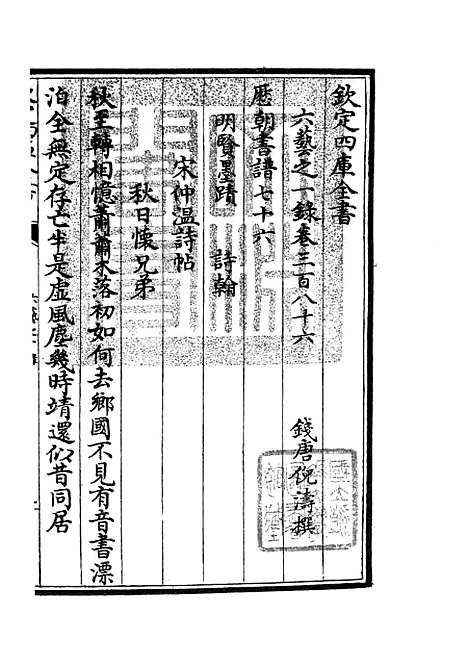 欽定四庫全書
六藝之一錄卷三百八十六
錢唐倪濤撰
歴朝書譜七十六
明賢墨蹟 詩翰
宋仲溫詩帖
秋日懷兄弟
秋至轉相憶蕭蕭木落初如何去鄉國不見有音書漂
泊全無定存亡半是虛風塵幾時靖還似昔同居